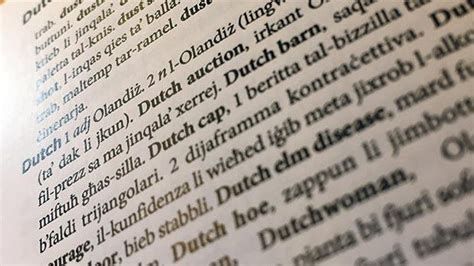 Dutch
trab. dust
buttuni. dust
ktieb li jinqala'. dust s
Paletta tal-knis. dust
shot, l-inqas qies ta' balla.
trab, maltemp tar-ramel. dust
ċinerarja.
Dutch 1 adj Olandiż. 2 n l-Olandiż (lingw
(ta' dak li jkun). Dutch auction, irkant
fil-prezz sa ma jinqala' xerrej. Dutch barn, saqa
miftuħ għas-silla. Dutch cap, 1 beritta tal-bizzilla ta
b'faldi trijangolari. 2 dijaframma kontraċettiva.
courage, il-kunfidenza li wieħed iġib meta jixrob l-alk
door, bieb stabbli. Dutch elm disease, mard
Dutch hoe, zappun li jimbott
Dutchwoman, Ol
njanta bi fjuri